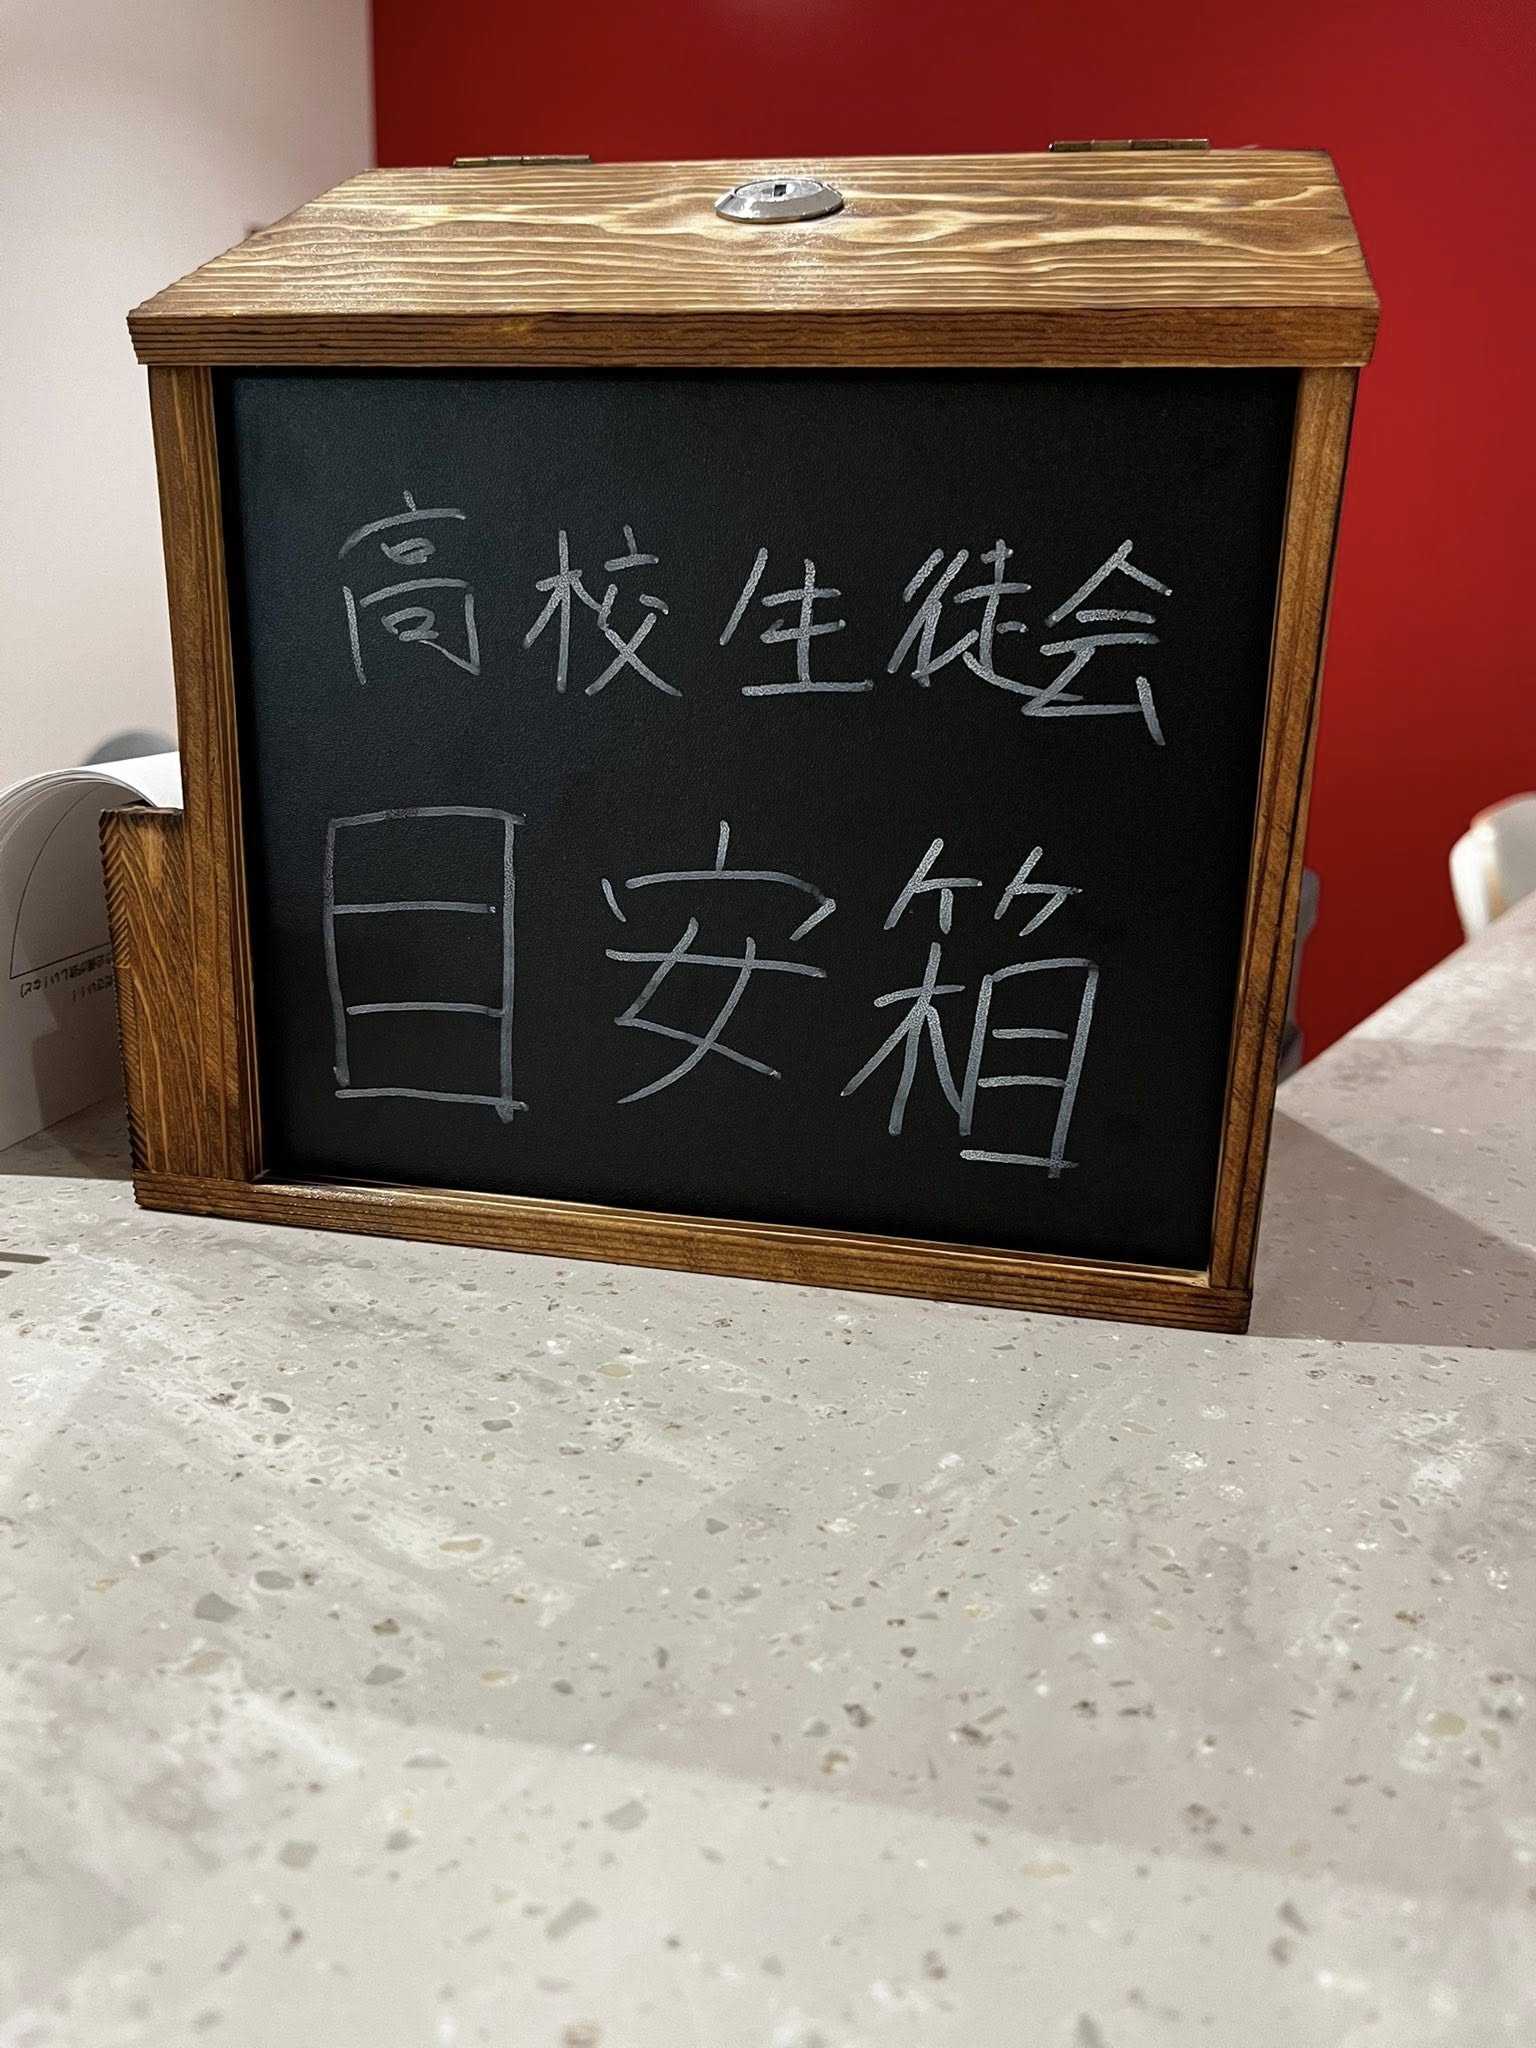 高校生徒会
目安箱